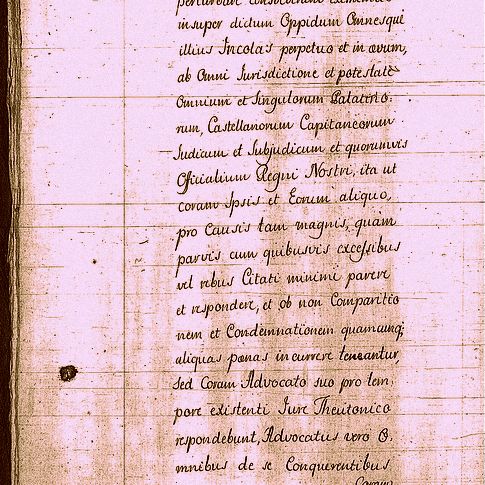 insuper dictum Oppidum Omnesqui
illius Incolas perpetuo et in ævum,
ab Omni Jurisdictione et potestate
Omnium et Singulorum Palatino
rum, Castellanorum Capitaneorum
Judicum et Subjudicum et quorumvis
Officialium Regni Nostri, ita ut
coram Ipsis et Eorum aliquo,
pro Causis tam magnis, quam
parvis cum quibusvis excessibus
vel rebus Citati minime parere
et respondere, et ob non Comparitio
nem et Condemnationem quamcunq;
aliquas pœnas incurrere teneantur,
Sed Coram Advocato suo pro tem,
pore existenti Jure Theutonico
respondebunt, Advocatus vero O.
mnibus de se Conquerentibus
Coram